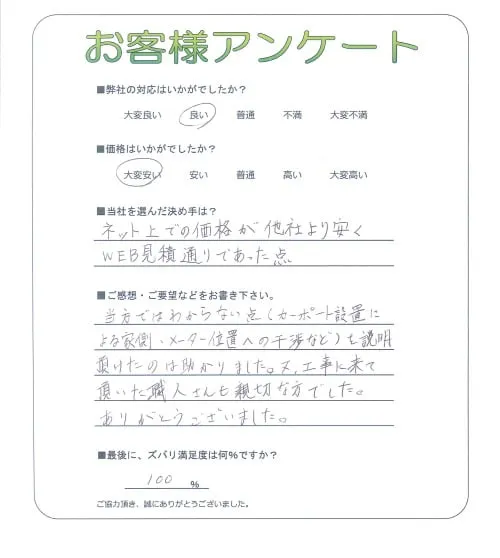 お客様アンケート
■弊社の対応はいかがでしたか？
大変良い 良い 普通 不満 大変不満
■価格はいかがでしたか？
大変安い 安い 普通 高い 大変高い
■当社を選んだ決め手は？
ネット上での価格が他社より安く
WEB見積通りであった点
■ご感想・ご要望などをお書き下さい。
当方ではわからない点（カーポート設置に
よる家側・メーター位置への干渉など）も説明
頂けたのは助かりました。又、工事に来て
頂いた職人さんも親切な方でした。
ありがとうございました。
■最後に、ズバリ満足度は何％ですか？
100 %
ご協力頂き、誠にありがとうございました。